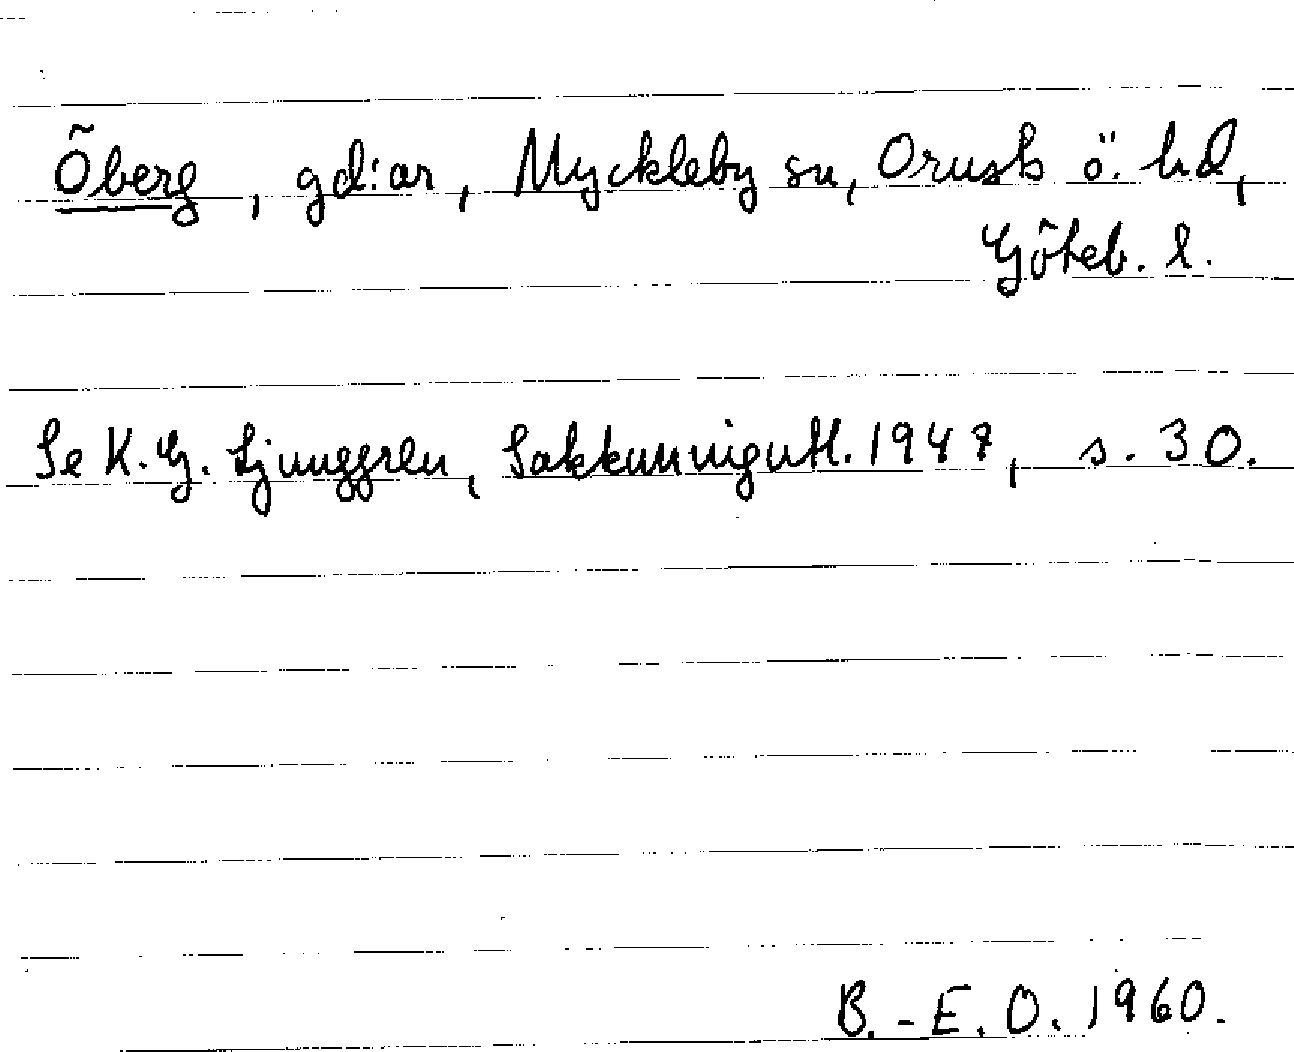 Öberg, gd:ar, Myckleby sn, Orusts ö. hd,
Göteb. l.
Se K. G. Ljunggren, Sakkunnigutl. 1947, s. 30.
B.-E. O. 1960.